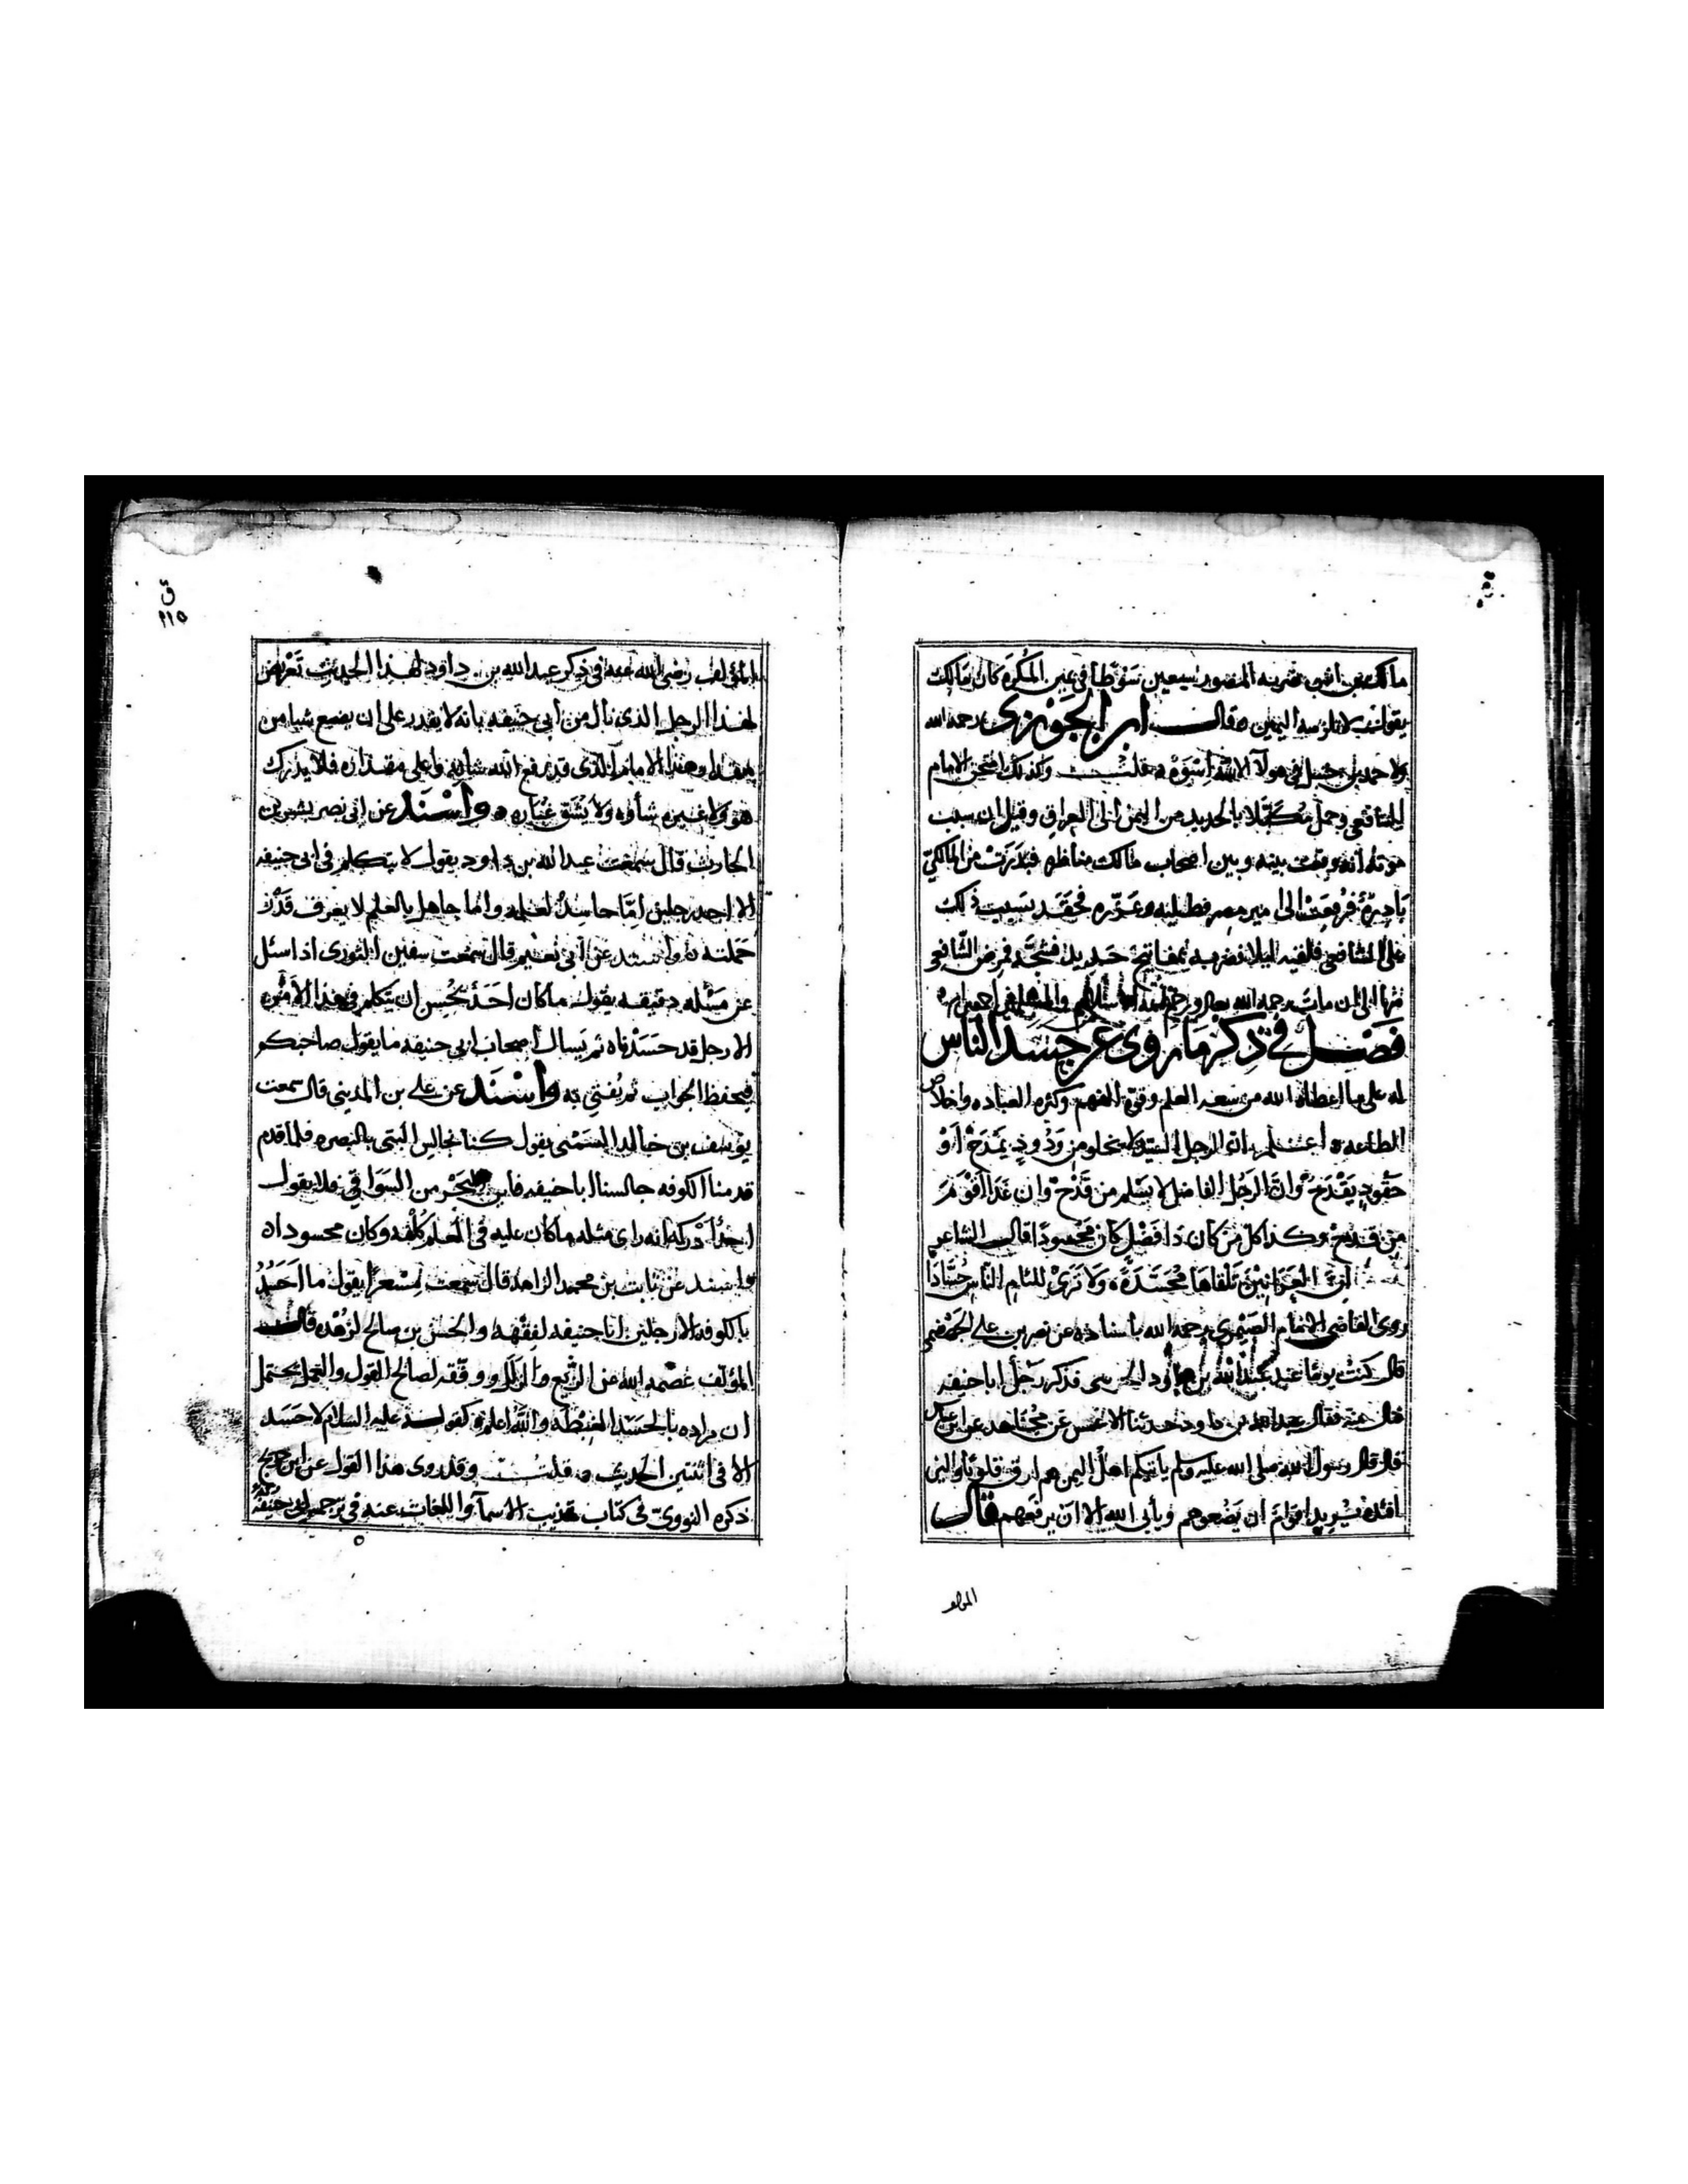 مالك بن انس ضربه المنصور سبعين سوطا في يمين المكره كان مالك
يقول لا تلزمه اليمين وقال ابن الجوزي رحمه الله
ولاحمد بن حنبل في هولآ الائمة اسوة قلت وكذلك امتحن الامام
الشافعي وحمل مكبلا بالحديد من اليمن الى العراق وقيل ان سبب
موته انه وقعت بينه وبين اصحاب مالك مناظره فبدرت من المالكي
بادرة فرفعت الى امير مصر فطلبه وعزره فحقد بسبب ذلك
على الشافعي فلقيه ليلا فضربه بمفتاح حديد فشجه فمرض الشافعي
منها الى ان مات رحمه الله
فصل في ذكر ما روي عن حسد الناس
له على ما اعطاه الله من سعة العلم وقوة الفهم وكثره العباده واخلاص
الطاعه اعلم ان الرجل السيد لا يخلو من ودود يمدح او
حقود يقدح وان الرجل الفاضل لا يسلم من قدح وان غدا اقوم
من قدح وكذا كل من كان ذا فضل كان محسودا قال الشاعر
ان العرانين تلقاها محسدة ولا ترى للئام الناس حسادا
روى القاضي الامام الصيمري رحمه الله باسناده عن نصر بن علي الجهضمي
قال كنت يوما عند عبد الله بن داود الخريبي فذكر رجل ابا حنيفه
فنال منه فقال عبد الله بن داود حدثنا الاعمش عن مجاهد عن ابن عباس
قال قال رسول الله صلى الله عليه وسلم ياتيكم اهل اليمن هم ارق قلوبا والين
افئدة يريد اقوام ان يضعوهم ويأبى الله الا ان يرفعهم قال
المولف
ق
٢١٥
المؤلف رضي الله عنه في ذكر عبد الله بن داود لهذا الحديث تعريض
لهذا الرجل الذي نال من ابي حنيفه بانه لا يقدر على ان يضع شيا من
هذا الامام الذي قد رفع الله شانه واعلى مقداره فلا يدرك
هو ولا غيره شأوه ولا يشق غباره واسند عن ابي نصر بشر بن
الحارث قال سمعت عبد الله بن داود يقول لا يتكلم في ابي حنيفه
الا احد رجلين اما حاسد لعلمه واما جاهل بالعلم لا يعرف قدر
حملته واسند عن ابي نعيم قال سمعت سفين الثوري اذا سئل
عن مسئله دقيقه يقول ما كان احد يحسن ان يتكلم في هذا الامر
الا رجل قد حسدناه ثم يسال اصحاب ابي حنيفه ما يقول صاحبكم
فيحفظ الجواب ثم يفتي به واسند عن علي بن المديني قال سمعت
يوسف بن خالد السمتي يقول كنا نجالس البتي بالبصره فلما قدم
قدمنا الكوفه جالسنا ابا حنيفه فاين البحر من السواقي فلا يقول
احد ادركه انه راى مثله ما كان عليه في العلم كلفه وكان محسودا
واسند عن ثابت بن محمد الزاهد قال سمعت مسعرا يقول ما احسد
بالكوفه الا رجلين ابا حنيفه لفقهه والحسن بن صالح لزهده قال
المؤلف عصمه الله عن الزيغ والزلل ووفقه لصالح القول والعمل يحتمل
ان مراده بالحسد الغبطه والله اعلم كقوله عليه السلام لا حسد
الا في اثنتين الحديث قلت وقد روى هذا القول عن ابن جريج
ذكره النووي في كتاب تهذيب الاسمآ واللغات عنه في ترجمة ابي حنيفه